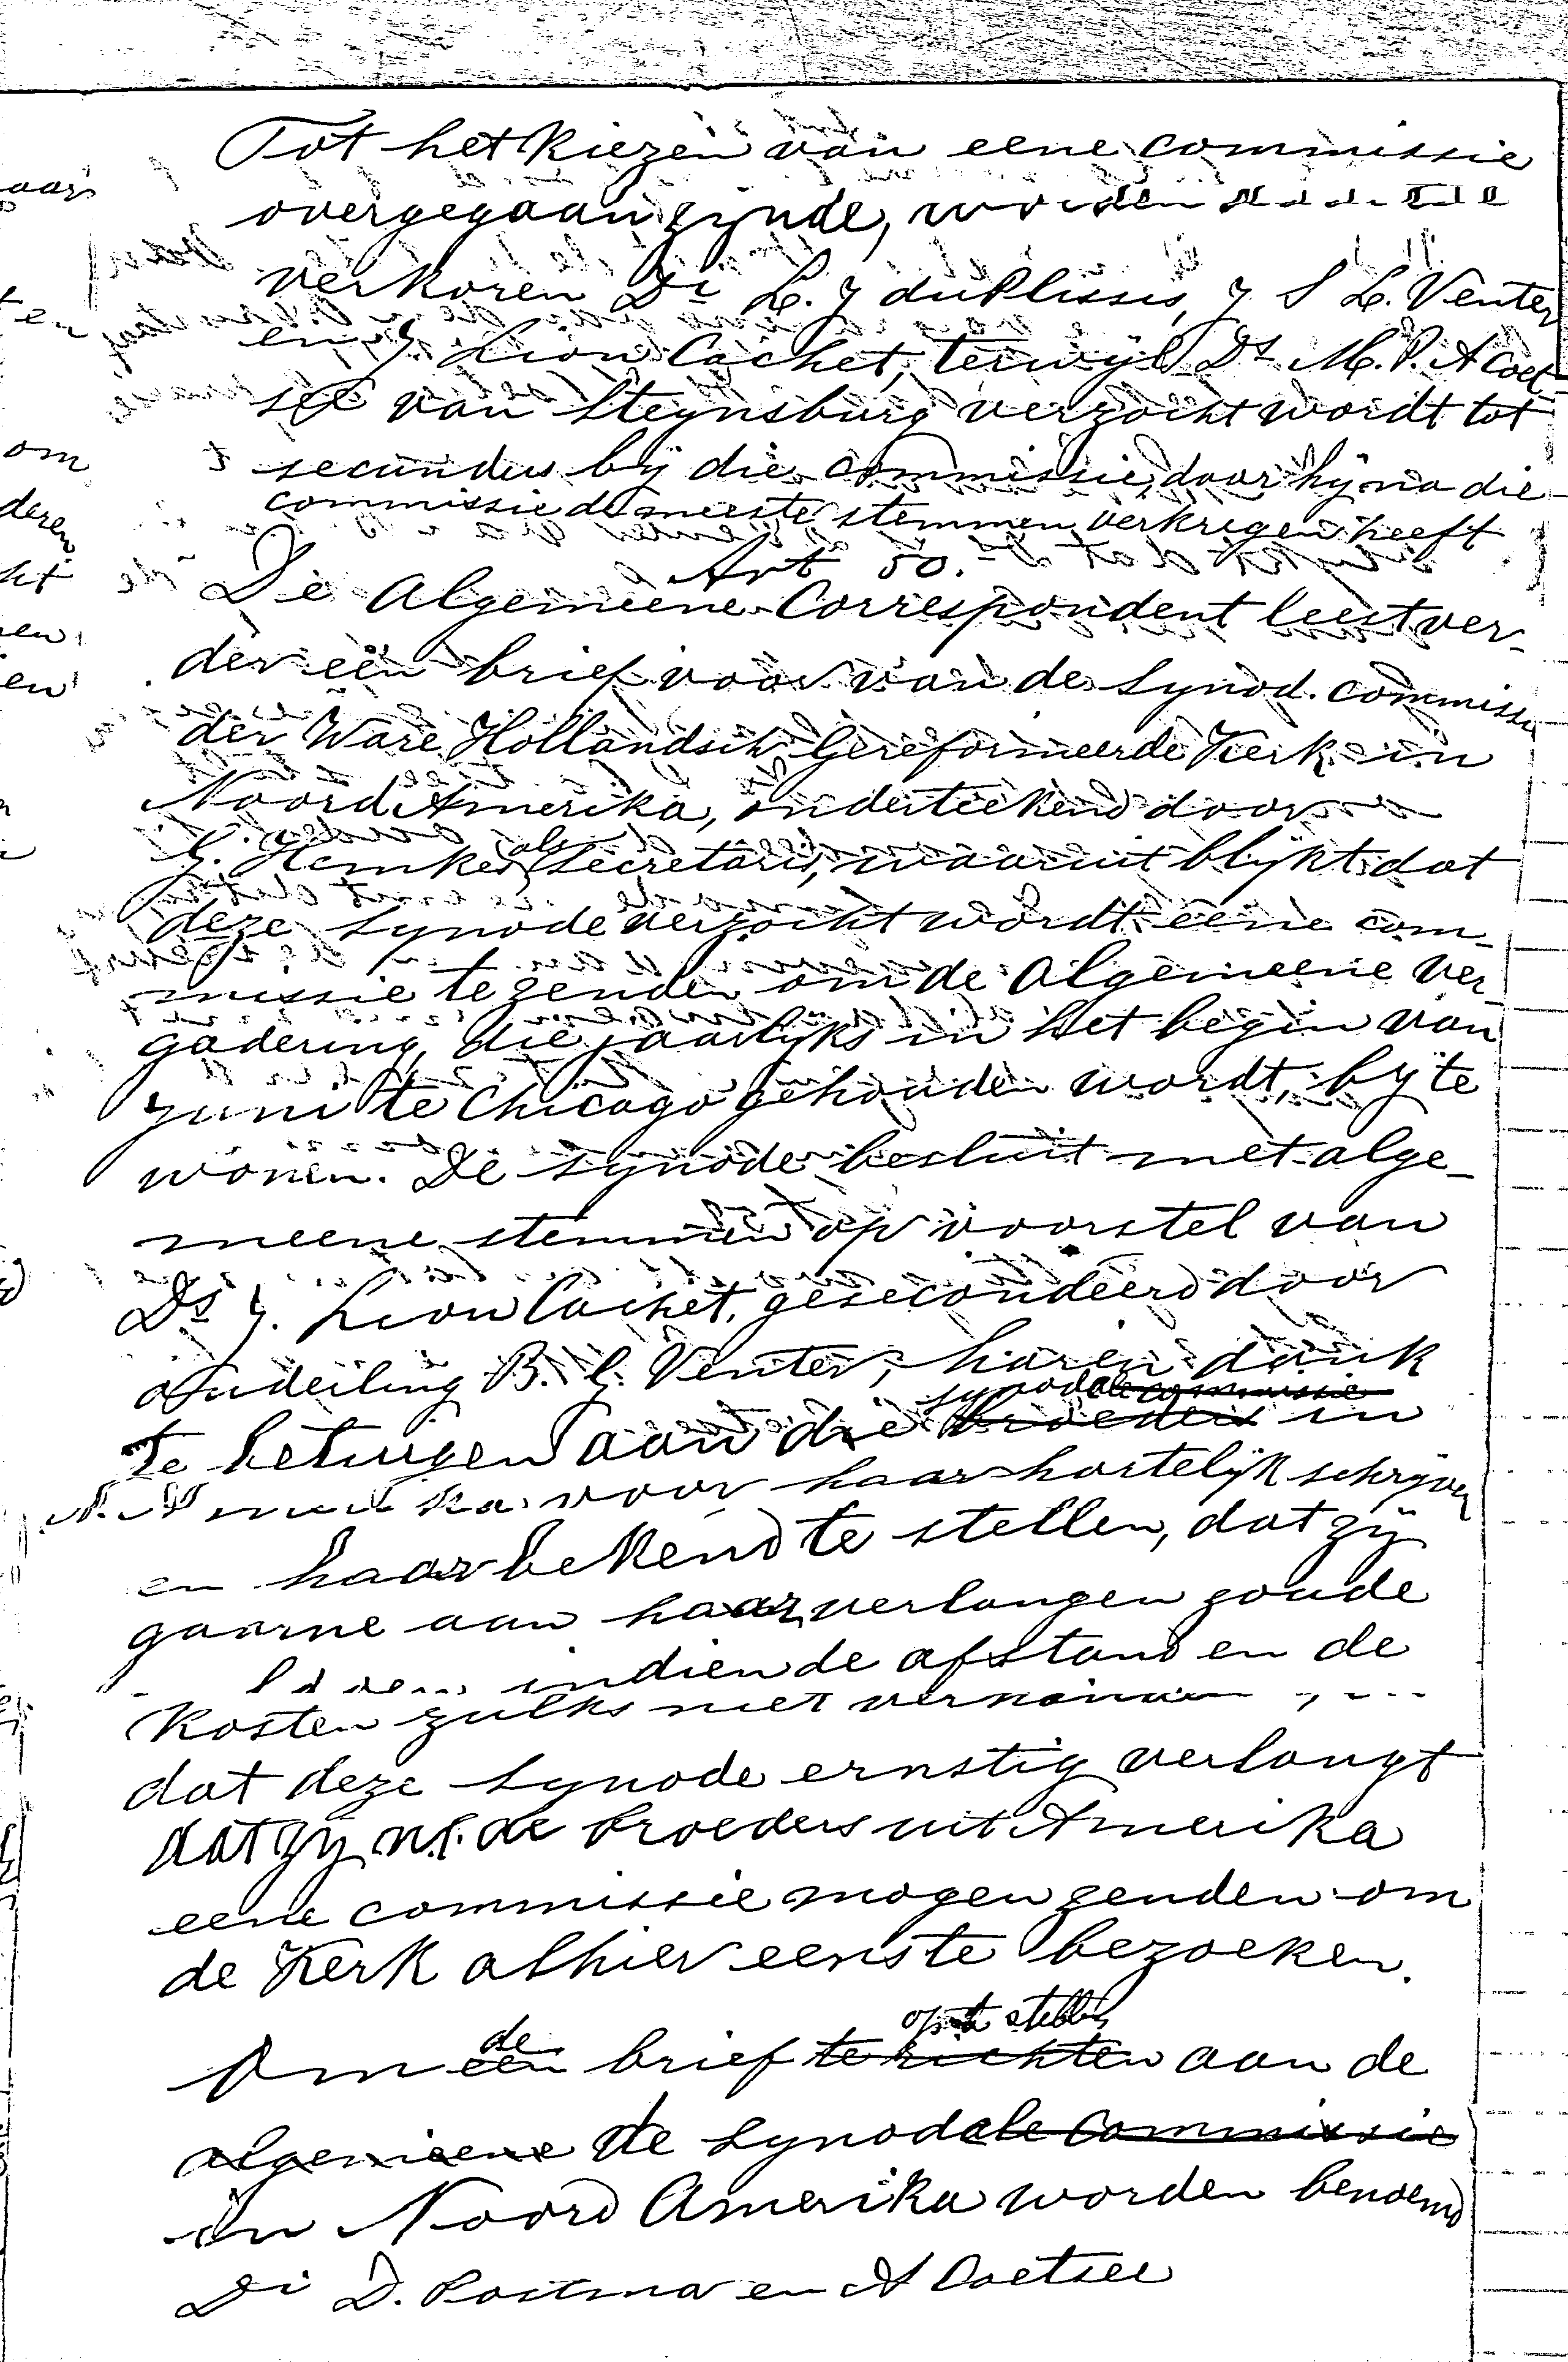 Tot het kiezen van eene commissie
overgegaan zijnde, worden
verkoren Di L. J du Plessis, J S L. Venter
en J. Lion Cachet, terwijl Ds M. P. A Coet-
see van Steynsburg verzocht wordt tot
secundus bij die commissie, daar hij na die
commissie de meeste stemmen verkregen heeft
Art 50.
De Algemeene Correspondent leest ver-
der een brief voor van de Synod. commissie
der Ware Hollandsch Gereformeerde Kerk in
Noord Amerika, onderteekend door
G. Hemkes als Secretaris, waaruit blijkt dat
deze Synode verzocht wordt eene com-
missie te zenden om de Algemeene Ver-
gadering, die jaarlijks in het begin van
Juni te Chicago gehouden wordt, bij te
wonen. De Synode besluit met alge-
meene stemmen op voorstel van
Ds J. Lion Cachet, gesecondeerd door
Ouderling B. G. Venter, haren dank
synodale commissie
te betuigen aan die broeders in
N. Amerika voor haar hartelijk schrijven
en haar bekend te stellen, dat zij
gaarne aan haar verlangen zoude
indien de afstand en de
kosten zulks niet
dat deze Synode ernstig verlangt
dat zij n.l. de broeders uit Amerika
eene commissie mogen zenden om
de Kerk alhier eens te bezoeken.
de op te stellen
Om een brief te richten aan de
algemeene de Synodale Commissie
in Noord Amerika worden benoemd
Di D. Postma en A Coetsee